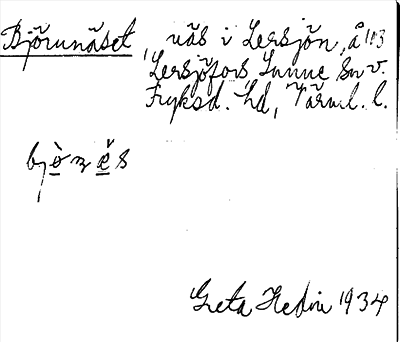 Björunäset näs i Lersjön, å 1/13
Lersjöfors, Sunne sn v.
Fryksd. hd, Värml. l.
bjò̲n æ̲̆s
Greta Hedin 1934